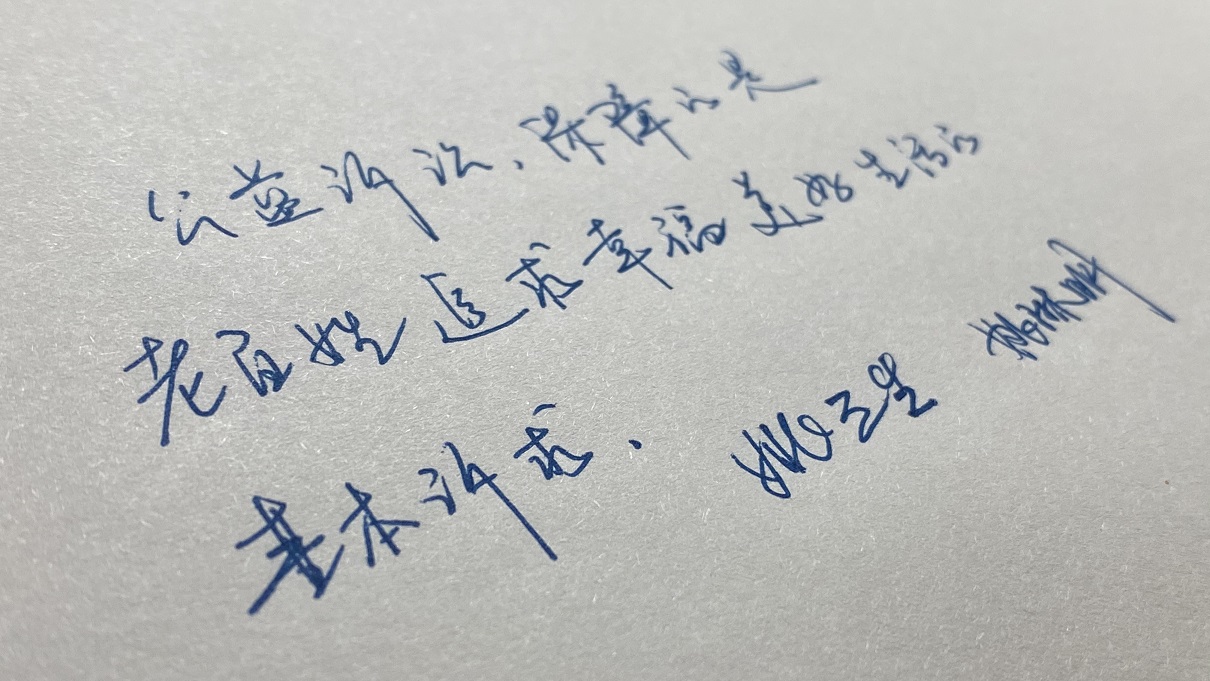 公益诉讼，保障的是
老百姓追求幸福美好生活的
基本诉求。